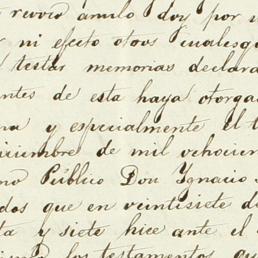 revoco anulo doy por n
ni efecto otros cualesq
testar memorias declara
ntes de esta haya otorga
na y especialmente el t
iciembre de mil ochocien
no Público Don Ignacio
dos que en veintisiete d
ta y siete hice ante el
los testamentos qu